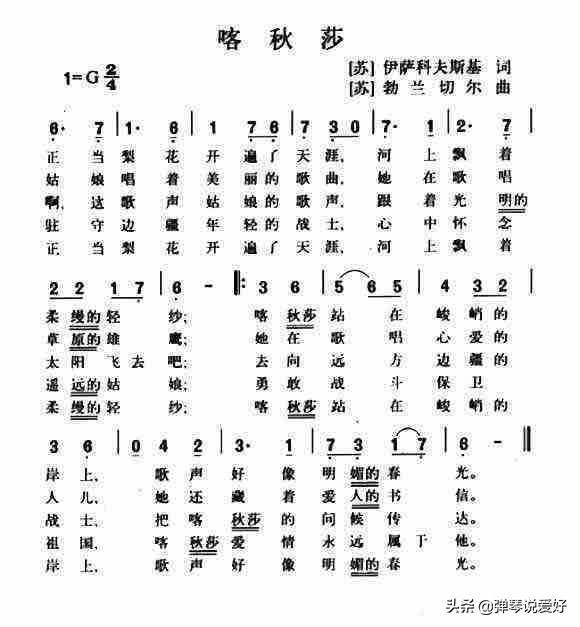 喀秋莎
1=G 2/4
[苏] 伊萨科夫斯基 词
[苏] 勃兰切尔 曲
6· 7 | 1· 6 | 1 7 6 | 7 3 0 | 7· 1 | 2· 7 |
正当梨花开遍了天涯,河上飘着
姑娘唱着美丽的歌曲,她在歌唱
啊,这歌声姑娘的歌声,跟着光明的
驻守边疆年轻的战士,心中怀念
正当梨花开遍了天涯,河上飘着
2 2 1 7 | 6 - |: 3 6 | 5 6 5 | 4 3 2 |
柔缦的轻纱;喀秋莎站在峻峭的
草原的雄鹰;她在歌唱心爱的
太阳飞去吧;去向远方边疆的
遥远的姑娘;勇敢战斗保卫
柔缦的轻纱;喀秋莎站在峻峭的
3 6 | 0 4 2 | 3· 1 | 7 3 1 7 | 6 - :||
岸上,歌声好像明媚的春光。
人儿,她还藏着爱人的书信。
战士,把喀秋莎的问候传达。
祖国,喀秋莎爱情永远属于他。
岸上,歌声好像明媚的春光。
头条 @弹琴说爱好